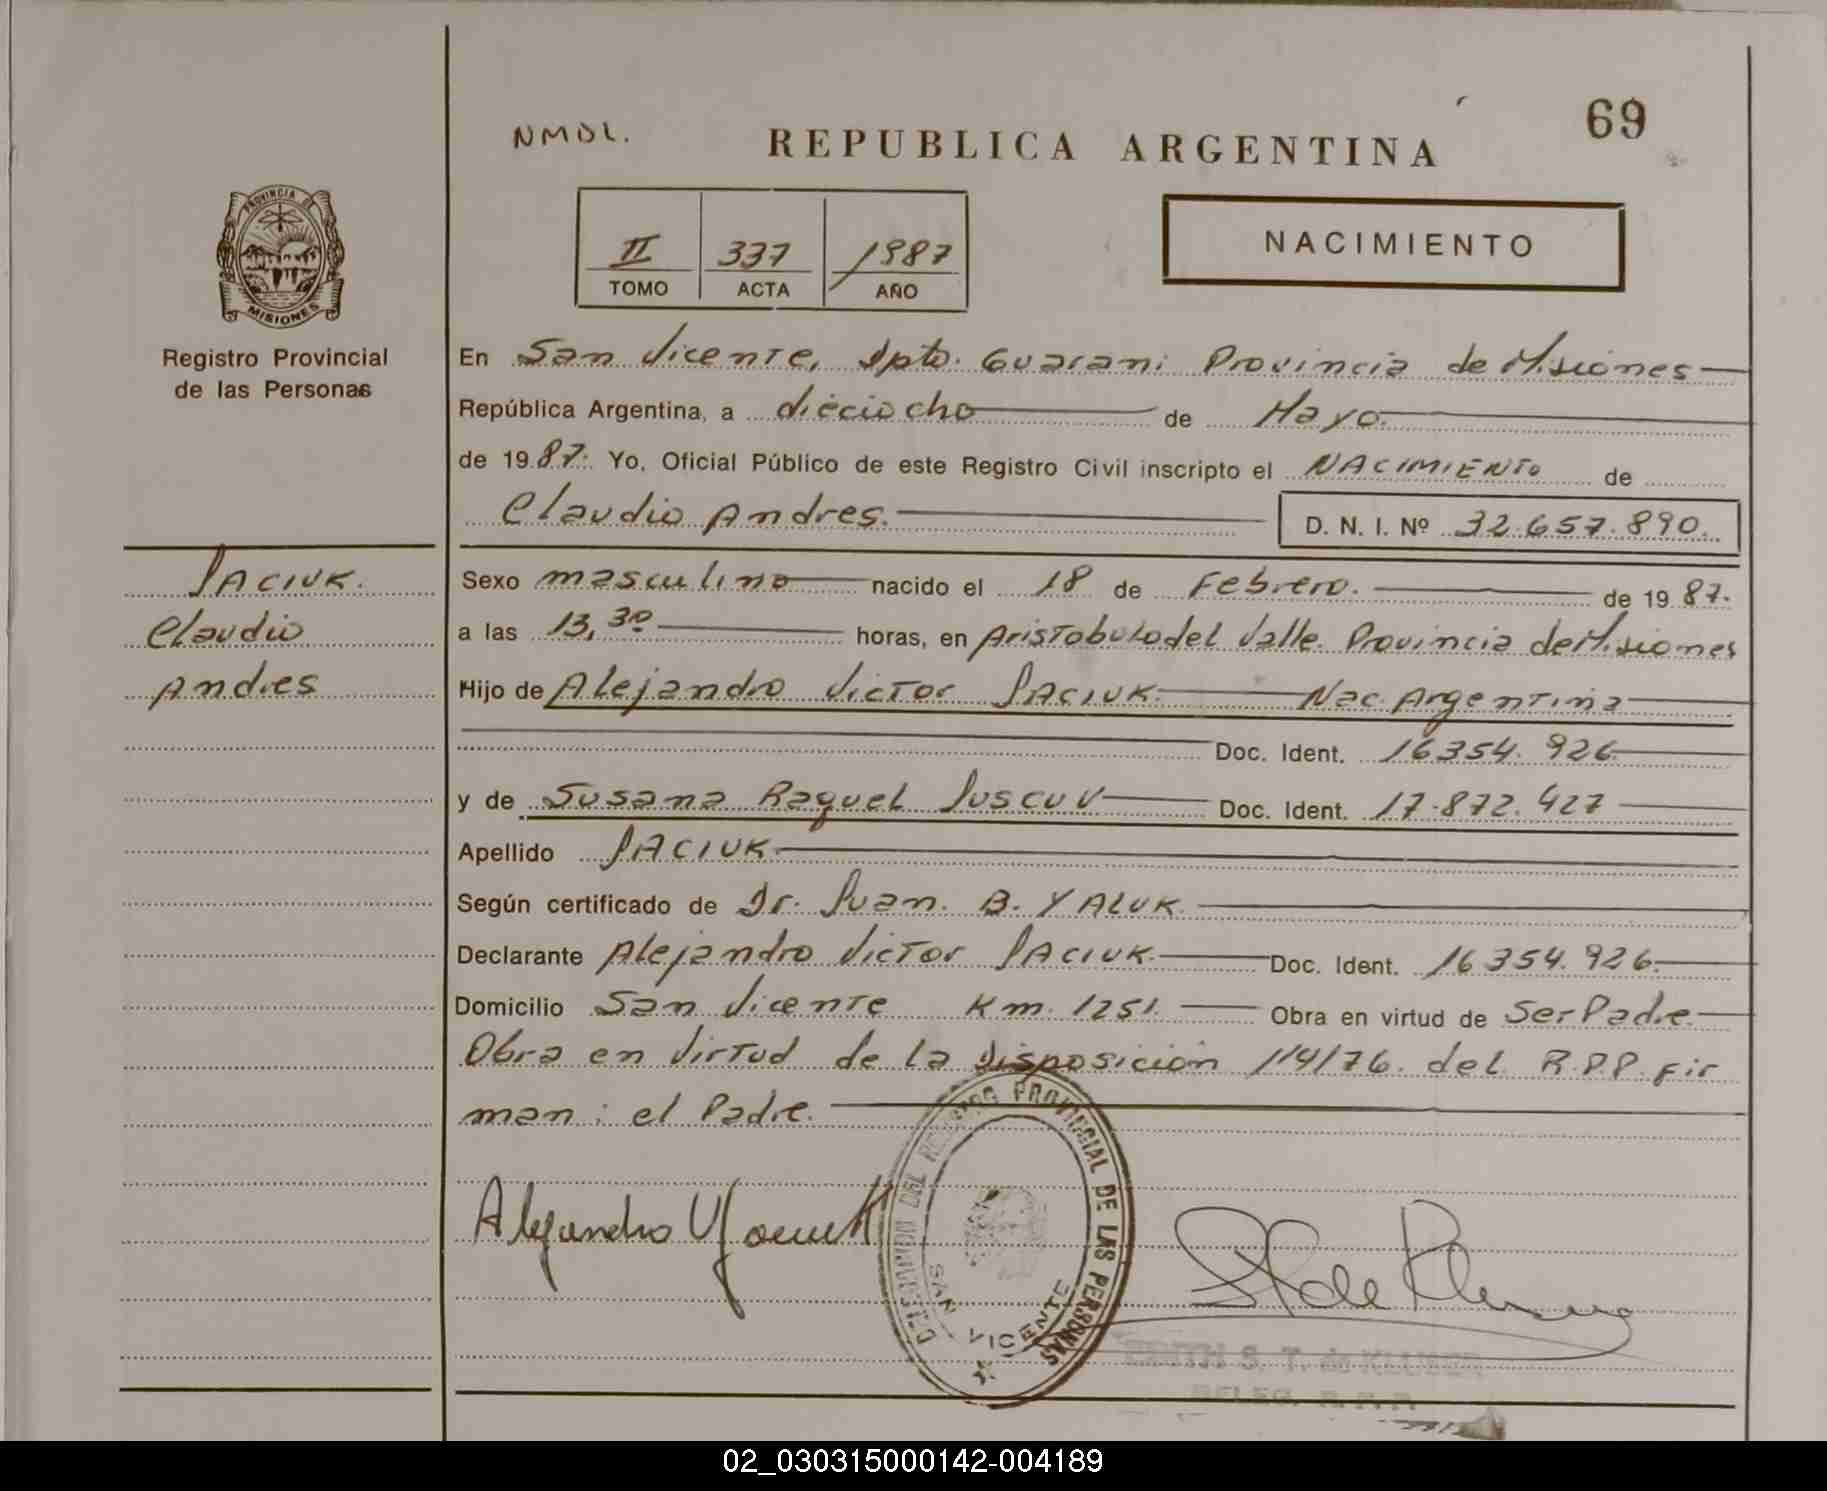 69
NMDL.
REPUBLICA ARGENTINA
PROVINCIA DE
MISIONES
II 337 1987
TOMO ACTA AÑO
NACIMIENTO
Registro Provincial
de las Personas
En San Vicente, Dpto. Guarani Provincia de Misiones
República Argentina, a dieciocho de Mayo.
de 1987. Yo, Oficial Público de este Registro Civil inscripto el NACIMIENTO de
Claudio Andres. D. N. I. Nº 32.657.890.
JACIUK.
Claudio
Andres
Sexo masculino nacido el 18 de Febrero. de 1987.
a las 13,30 horas, en Aristobulo del Valle. Provincia de Misiones
Hijo de Alejandro Victor JACIUK. Nac. Argentina
Doc. Ident. 16354.926
y de Susana Raquel Doc. Ident. 17.872.427
Apellido JACIUK.
Según certificado de Dr. Juan. B. YALUK.
Declarante Alejandro Victor JACIUK. Doc. Ident. 16354.926.
Domicilio San Vicente Km. 1251. Obra en virtud de Ser Padre.
Obra en virtud de la Disposición 114/76. del R.P.P. Fir
man: el Padre.
Alejandro V Jaciuk
DELEGACION DEL REGISTRO PROVINCIAL DE LAS PERSONAS
SAN VICENTE
S. T. de KLUMER
02_030315000142-004189